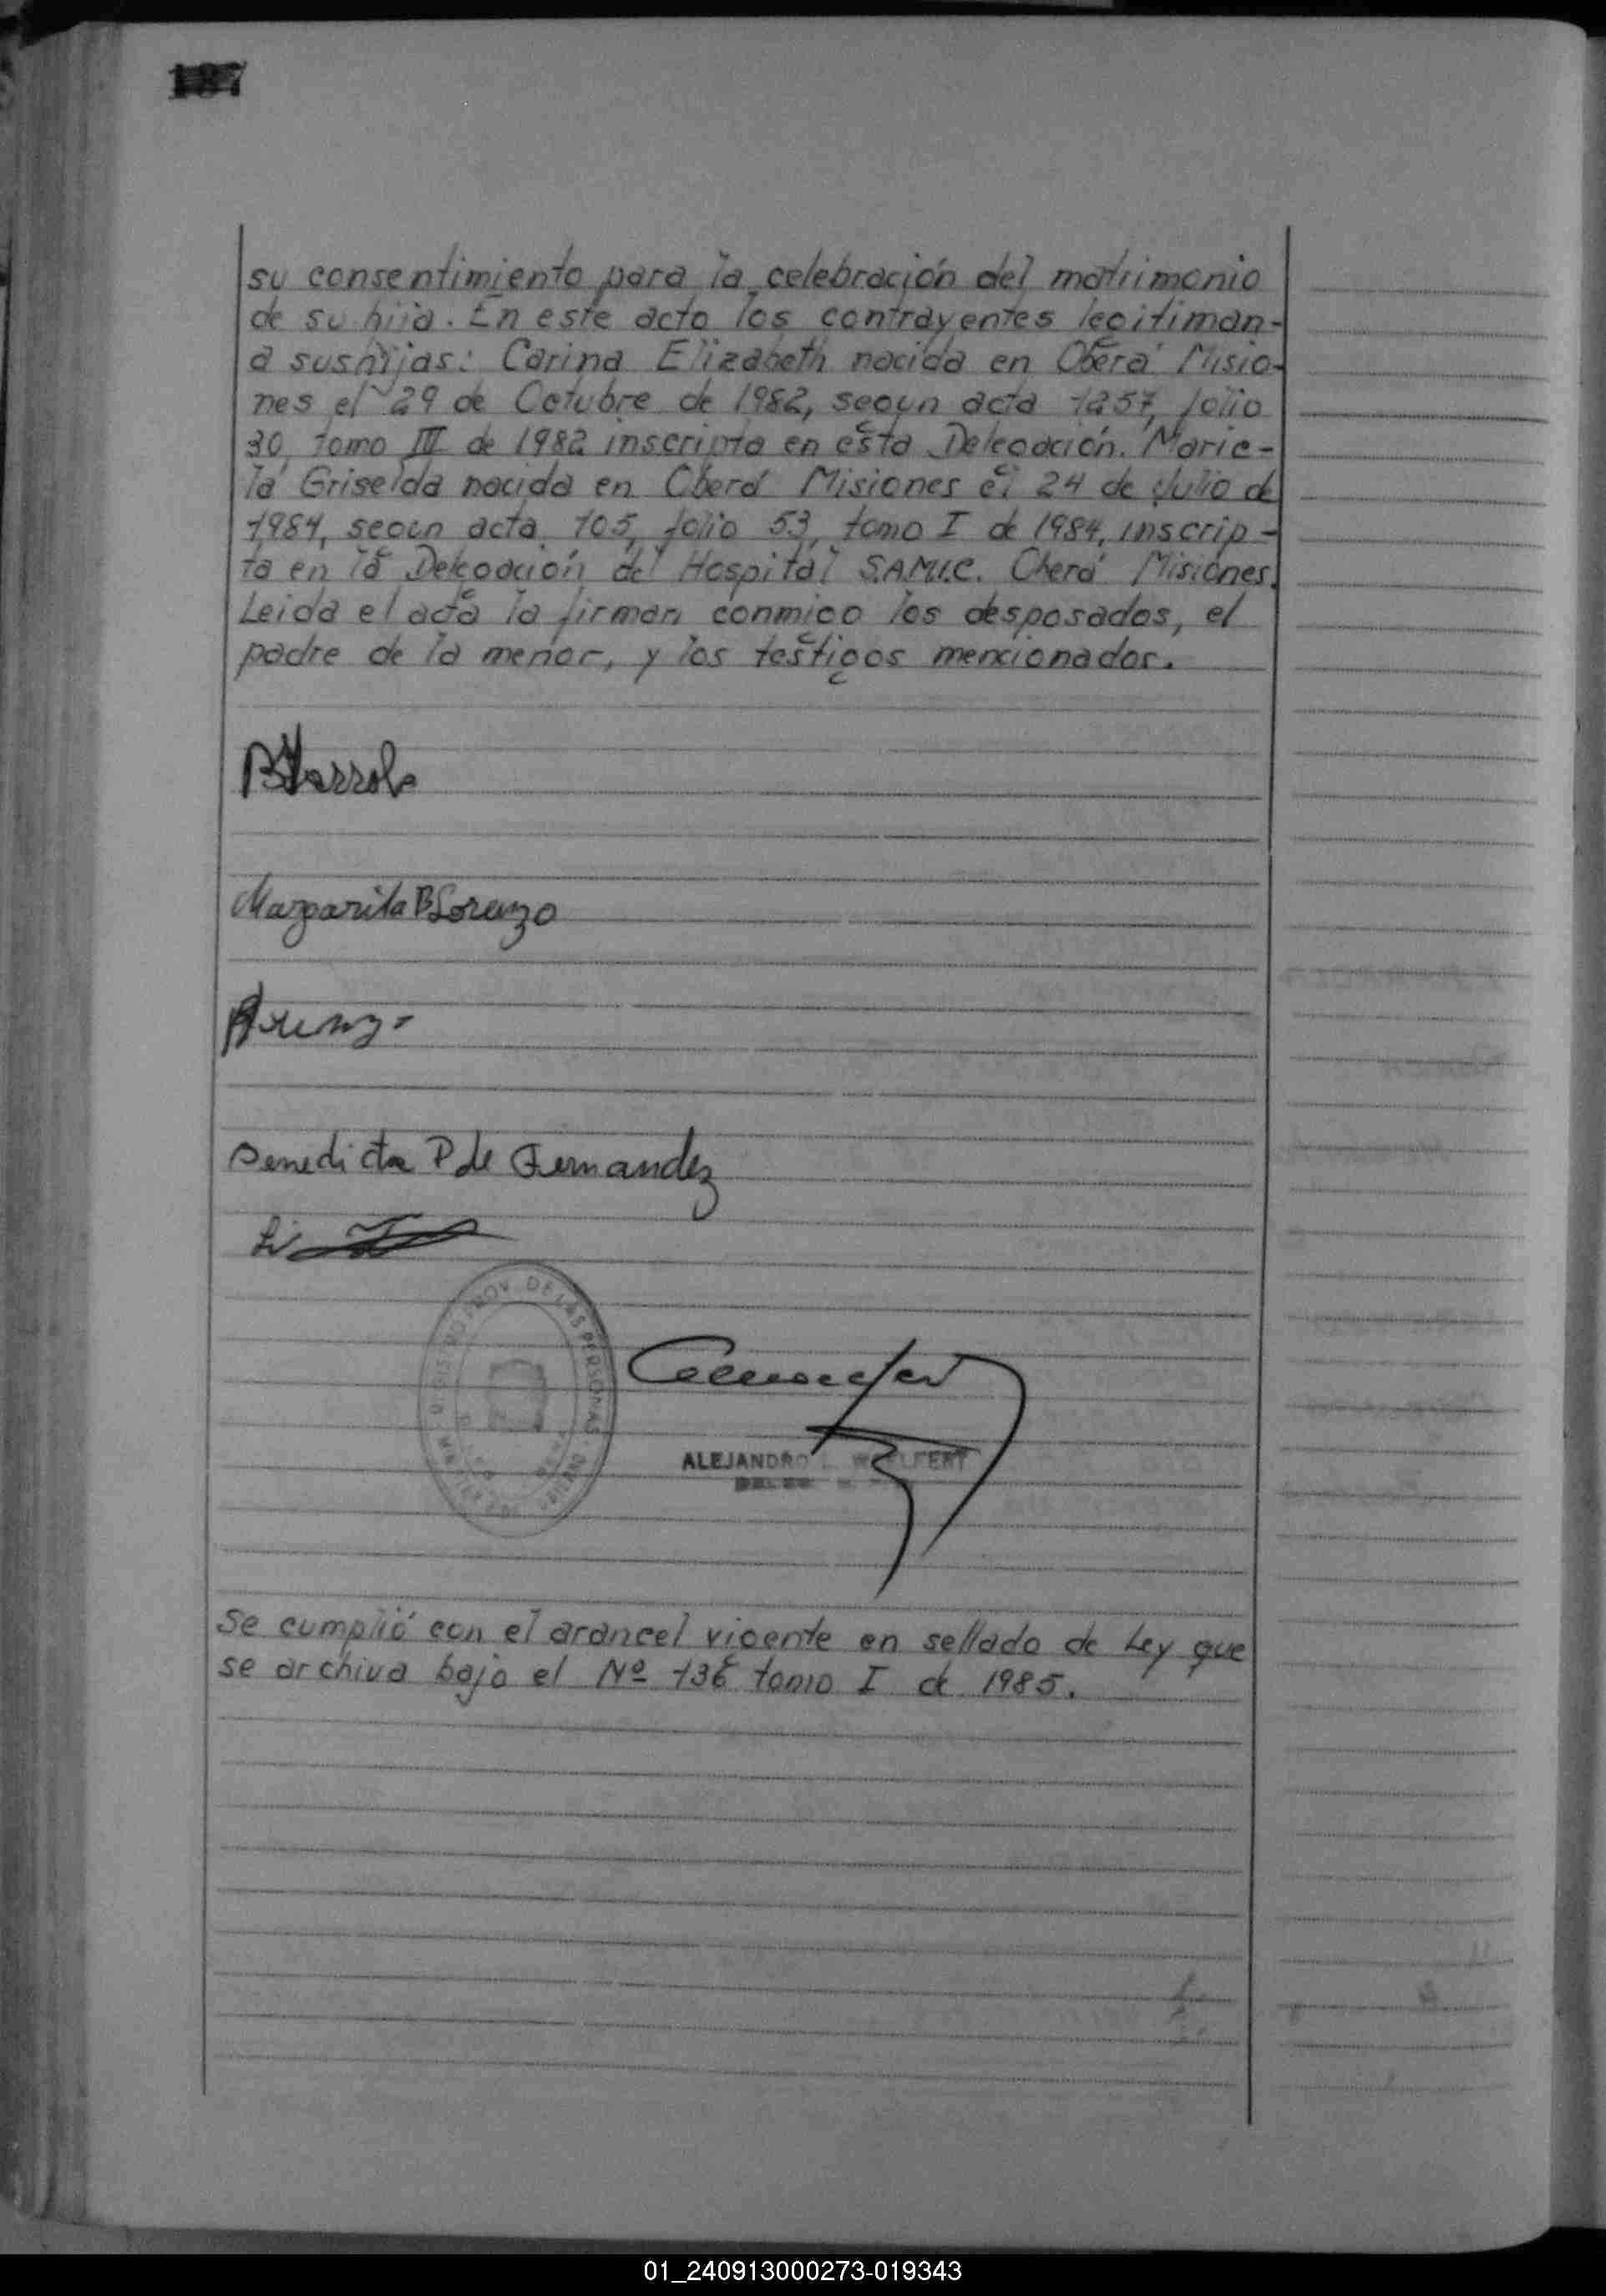 187
su consentimiento para la celebración del matrimonio
de su hija. En este acto los contrayentes legitiman-
a sus hijas: Carina Elizabeth nacida en Oberá Misio-
nes el 29 de Octubre de 1982, segun acta 1257, folio
30, tomo III de 1982 inscripta en esta Delegación. Marie-
la Griselda nacida en Oberá Misiones el 24 de Julio de
1984, segun acta 105, folio 53, tomo I de 1984, inscrip-
ta en la Delegación del Hospital S.A.M.I.C. Oberá Misiones.
Leida el acta la firman conmigo los desposados, el
padre de la menor, y los testigos mencionados.
Margarita B Lorenzo
Benedicta P de Fernandez
REGISTRO PROV. DE LAS PERSONAS
ALEJANDRO WOLFERT
Se cumplió con el arancel vigente en sellado de Ley que
se archiva bajo el Nº 136 tomo I de 1985.
01_240913000273-019343